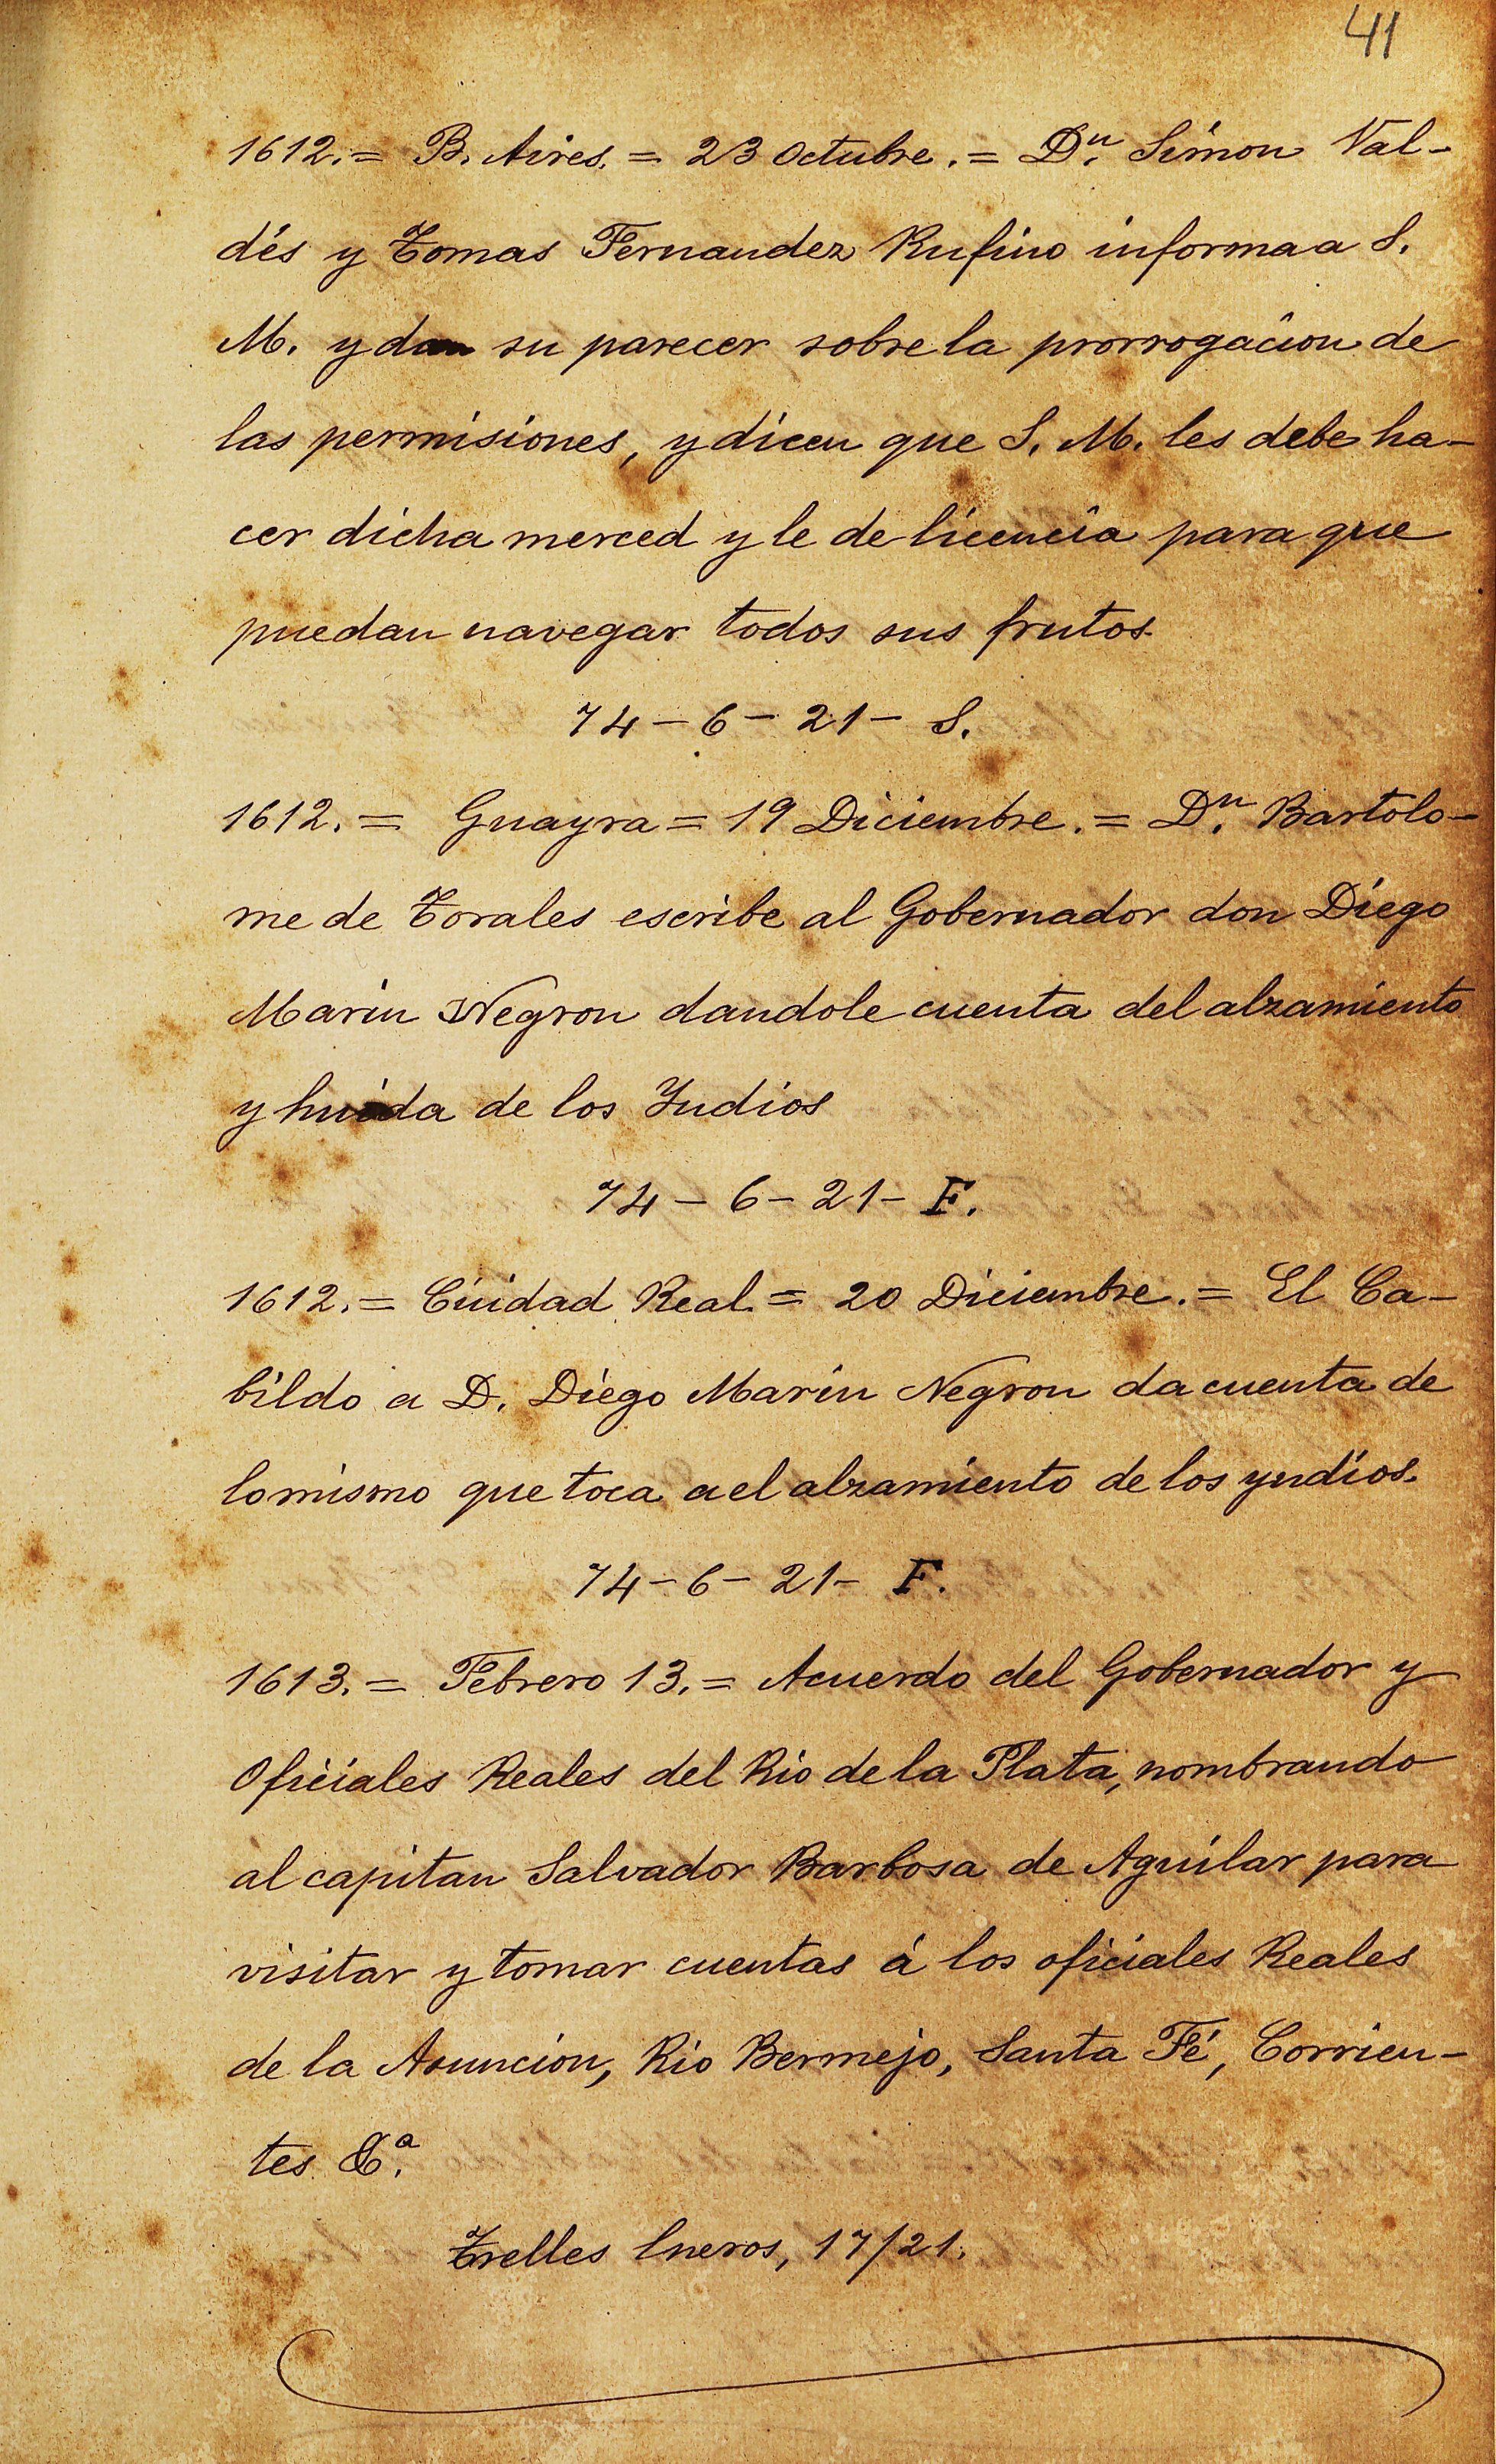 41
1612.= B. Aires. = 23 Octubre. = Dⁿ. Simon Val-
dés y Tomas Fernandez Rufino informa a S.
M. y dan su parecer sobre la prorrogacion de
las permisiones, y dicen que S. M. les debe ha-
cer dicha merced y le de licencia para que
puedan navegar todos sus frutos.
74 - 6 - 21 - S.
1612. = Guayra = 19 Diciembre. = Dⁿ. Bartolo-
me de Torales escribe al Gobernador don Diego
Marin Negron dandole cuenta del alzamiento
y huida de los Yndios
74 - 6 - 21 - F.
1612. = Ciudad Real. = 20 Diciembre. = El Ca-
bildo a D. Diego Marin Negron da cuenta de
lo mismo que toca a el alzamiento de los yndios.
74 - 6 - 21 - F.
1613. = Febrero 13. = Acuerdo del Gobernador y
Oficiales Reales del Rio de la Plata, nombrando
al capitan Salvador Barbosa de Aguilar para
visitar y tomar cuentas á los oficiales Reales
de la Asuncion, Rio Bermejo, Santa Fé, Corrien-
tes &ª.
Trelles 17/21.